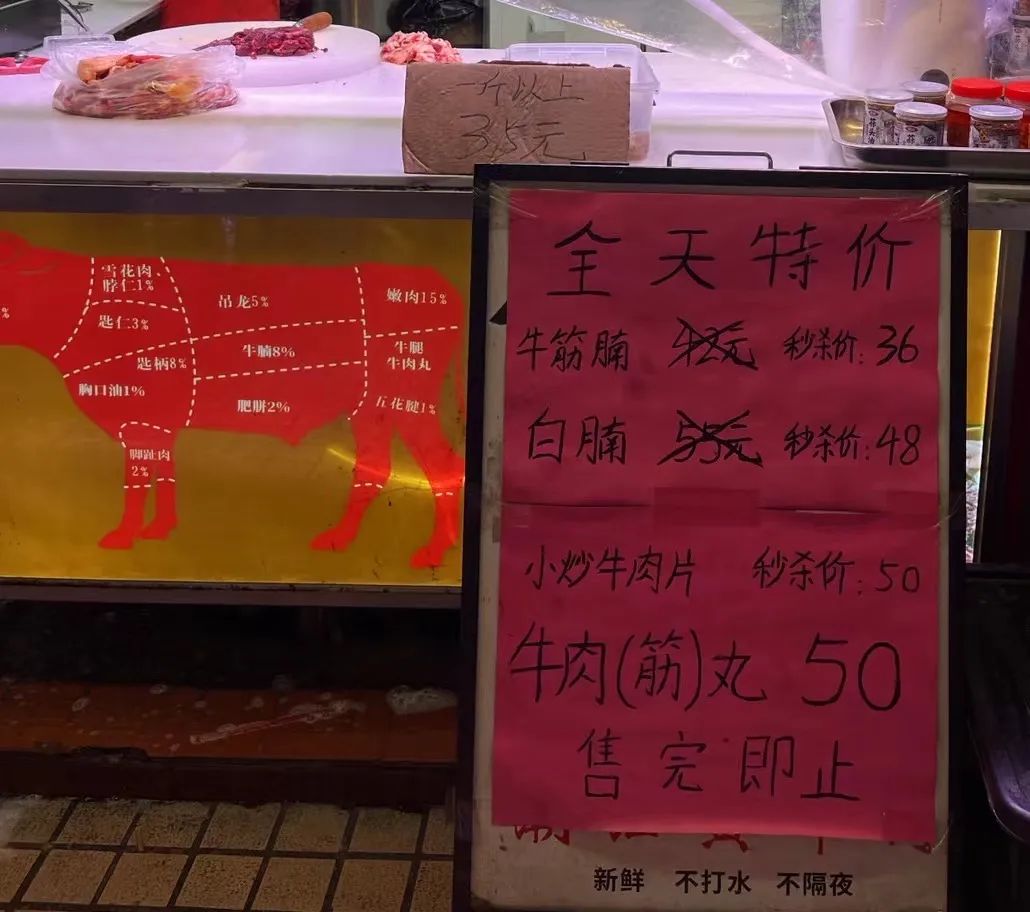 一斤以上
35元
全天特价
牛筋腩 42元 秒杀价:36
白腩 55元 秒杀价:48
小炒牛肉片 秒杀价:50
牛肉(筋)丸 50
售完即止
新鲜 不打水 不隔夜
雪花肉、
脖仁1%
匙仁3%
匙柄8%
胸口油1%
脚趾肉
2%
吊龙5%
牛腩8%
肥胼2%
嫩肉15%
牛腿
牛肉丸
五花腱1%